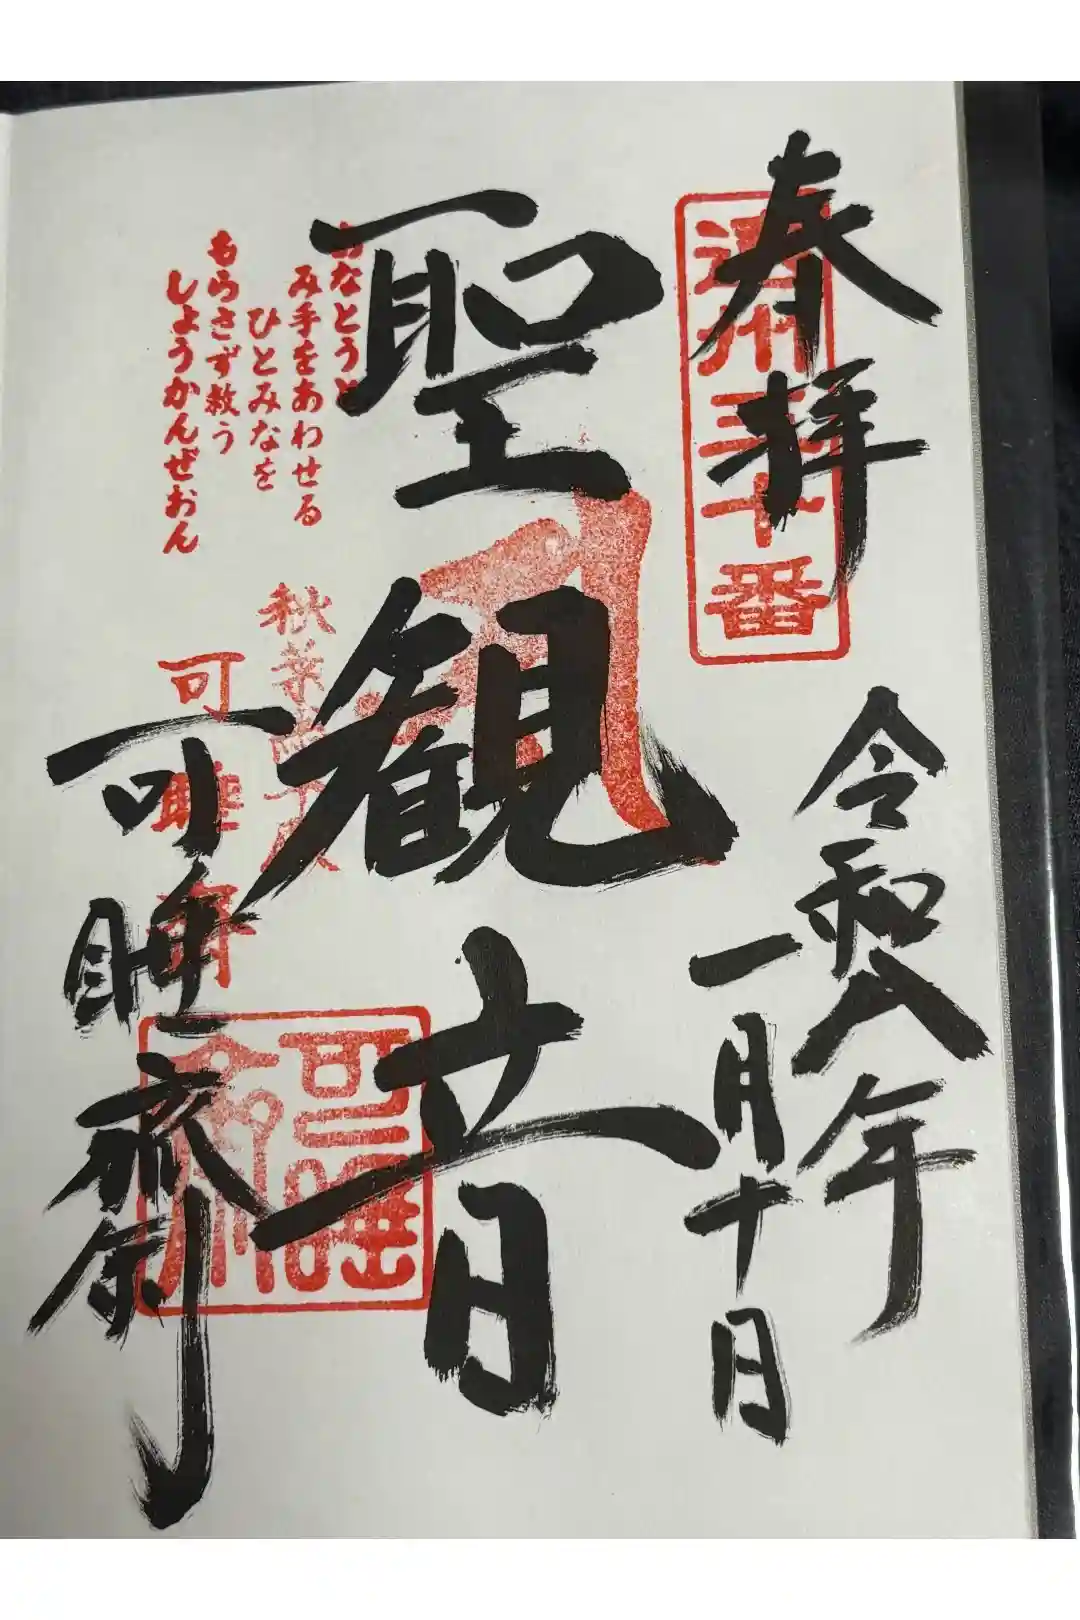 奉拝
遠州三十番
令和八年
一月十日
聖観音
あなとうと
み手をあわせる
ひとみなを
もらさず救う
しょうかんぜおん
秋葉総本殿
可睡斎
可睡斎
可睡
斎